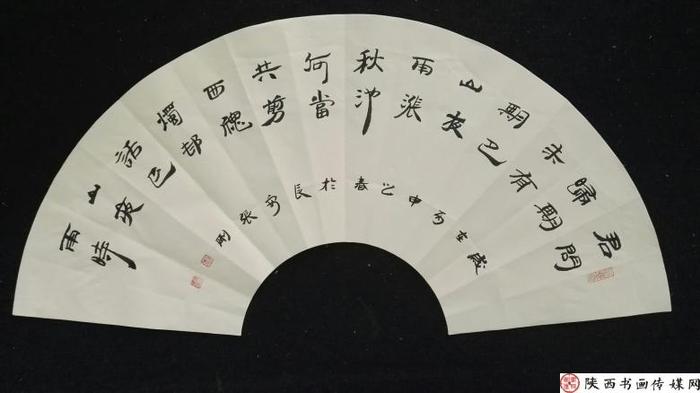 君問
歸期
未有
期巴
山夜
雨漲
秋池
何當
共剪
西窗
燭却
話巴
山夜
雨時
歲在丙申之春於長安張剛
陕西书画传媒网